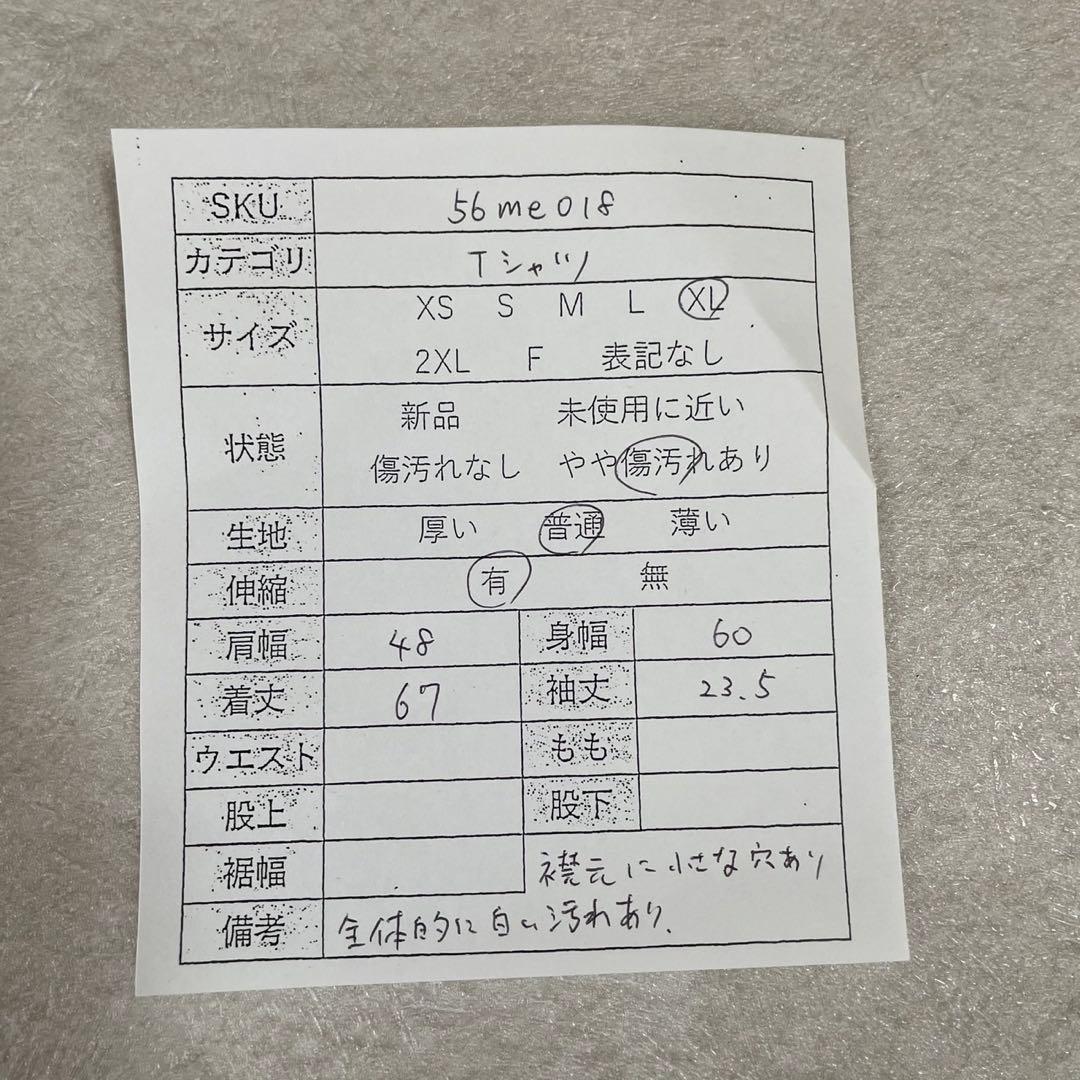 SKU 56me018
カテゴリ Tシャツ
サイズ XS S M L XL
2XL F 表記なし
状態 新品 未使用に近い
傷汚れなし やや傷汚れあり
生地 厚い 普通 薄い
伸縮 有 無
肩幅 48 身幅 60
着丈 67 袖丈 23.5
ウエスト もも
股上 股下
裾幅 襟元に小さな穴あり
備考 全体的に白い汚れあり.